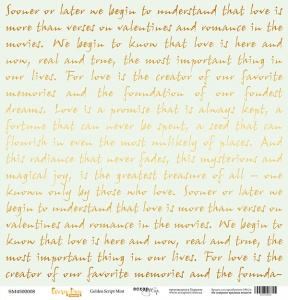 Sooner or later we begin to understand that love is
more than verses on valentines and romance in the
movies. We begin to know that love is here and
now, real and true, the most important thing in
our lives. For love is the creator of our favorite
memories and the foundation of our fondest
dreams. Love is a promise that is always kept, a
fortune that can never be spent, a seed that can
flourish in even the most unlikely of places. And
this radiance that never fades, this mysterious and
magical joy, is the greatest treasure of all – one
known only by those who love. Sooner or later we
begin to understand that love is more than verses on
valentines and romance in the movies. We begin to
know that love is here and now, real and true, the
most important thing in our lives. For love is the
creator of our favorite memories and the founda-
Golden Script Mint